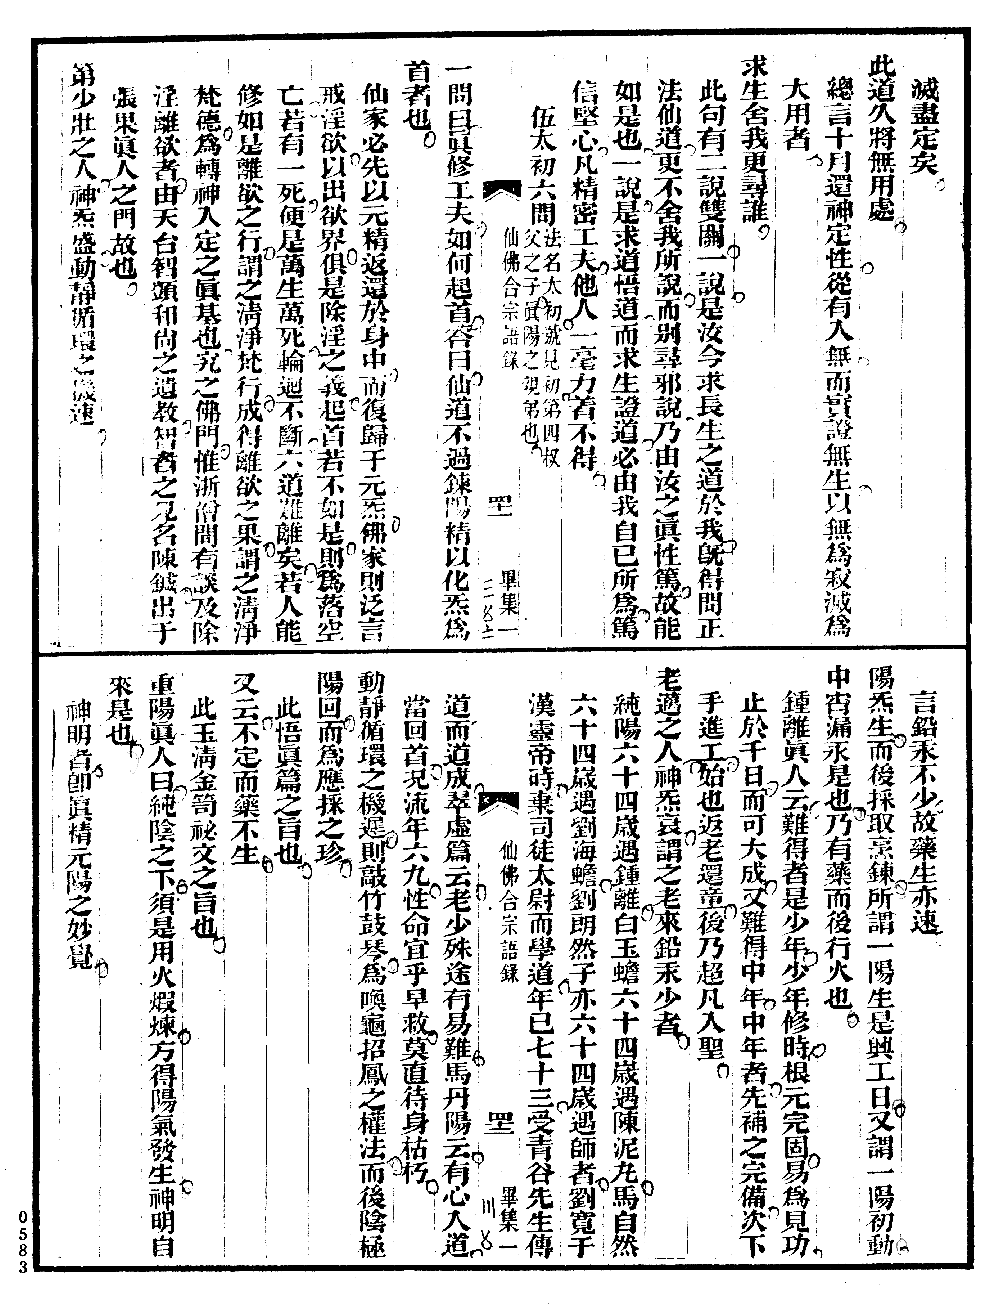 滅盡定矣
此道久將無用處
總言十月還神定性從有入無而實證無生以無爲寂滅爲
大用者
求生舍我更尋誰
此句有二說雙關一說是汝今求長生之道於我旣得問正
法仙道更不舍我所說而別尋邪說乃由汝之眞性篤故能
如是也一說是求道悟道而求生證道必由我自己所爲篤
信堅心凡精密工夫他人一毫力着不得
伍太初六問法名太初就見初第四叔
父之子眞陽之親弟也
仙佛合宗語錄
罒一
畢集一
一問曰眞修工夫如何起首答曰仙道不過鍊陽精以化炁爲
首者也
仙家必先以元精返還於身中而復歸于元炁佛家則泛言
戒淫欲以出欲界俱是除淫之義起首若不如是則爲落空
亡若有一死便是萬生萬死輪迴不斷六道難離矣若人能
修如是離欲之行謂之淸淨梵行成得離欲之果謂之淸淨
梵德爲轉神入定之眞基也究之佛門惟浙僧間有談及除
淫離欲者由天台智顗和尙之遺教智者之兄名陳鍼出于
張果眞人之門故也
第少壯之人神炁盛動靜循環之機速
言鉛汞不少故藥生亦速
陽炁生而後採取烹鍊所謂一陽生是興工日又謂一陽初動
中宵漏永是也乃有藥而後行火也
鍾離眞人云難得者是少年少年修時根元完固易爲見功
止於千日而可大成又難得中年中年者先補之完備次下
手進工始也返老還童後乃超凡入聖
老邁之人神炁衰謂之老來鉛汞少者
純陽六十四歲遇鍾離白玉蟾六十四歲遇陳泥丸馬自然
六十四歲遇劉海蟾劉朗然子亦六十四歲遇師者劉寬于
漢靈帝時隶司徒太尉而學道年已七十三受靑谷先生傳
仙佛合宗語錄
罒一
畢集一
道而道成翠虛篇云老少殊途有易難馬丹陽云有心入道
當回首況流年六九性命宜乎早救莫直待身枯朽
動靜循環之機遲則敲竹鼓琴爲喚龜招鳳之權法而後陰極
陽回而爲應採之珍
此悟眞篇之旨也
又云不定而藥不生
此玉淸金笥祕文之旨也
重陽眞人曰純陰之下須是用火煅煉方得陽氣發生神明自
來是也
神明者卽眞精元陽之妙覺
0583